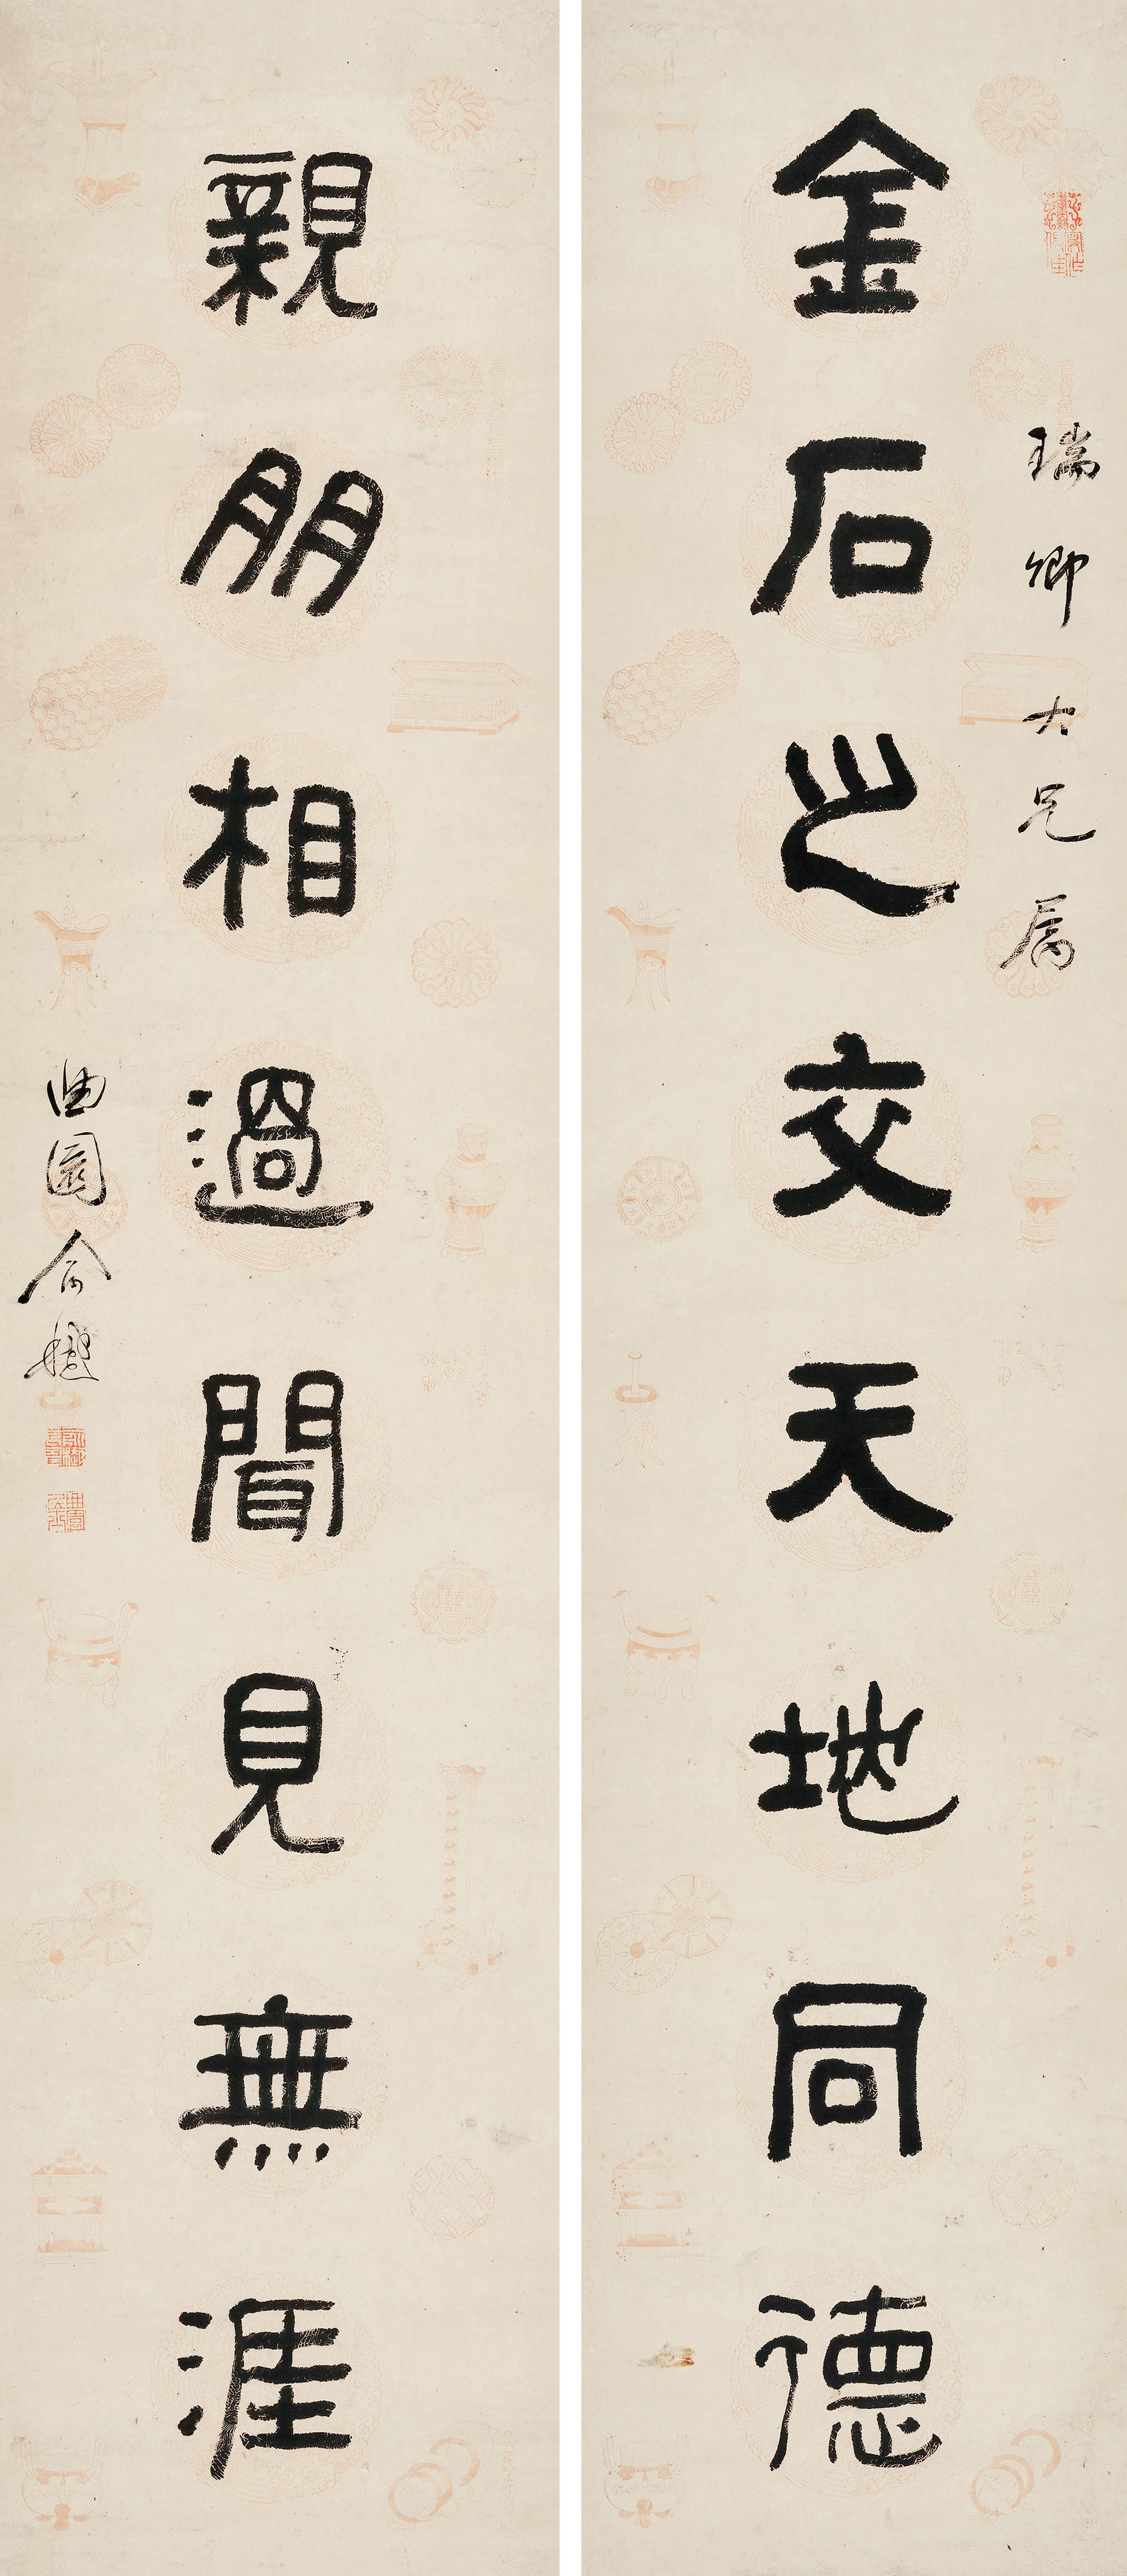 瑞卿大兄属
金石之交天地同德
親朋相過閒見無涯
曲園俞樾